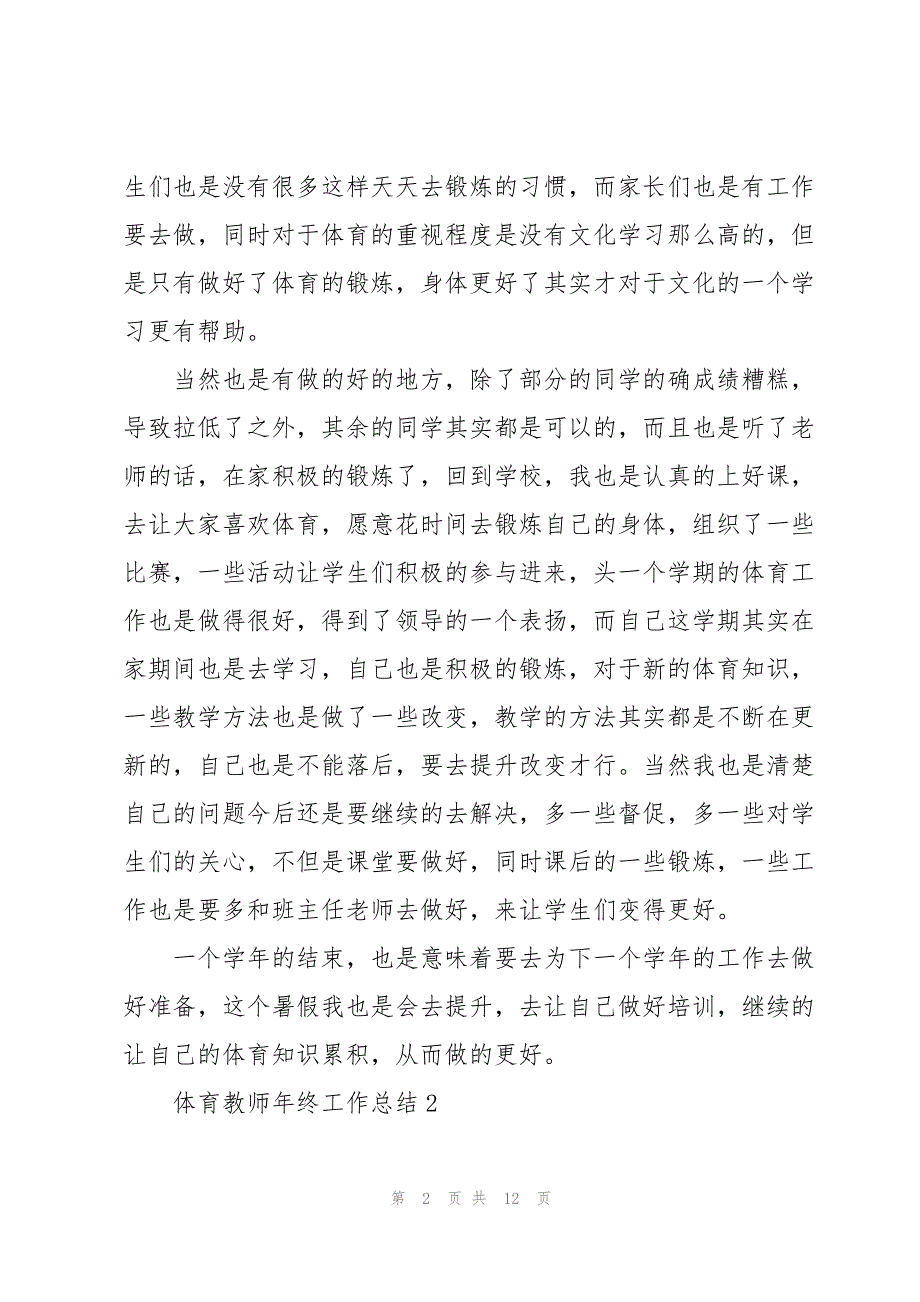 生们也是没有很多这样天天去锻炼的习惯，而家长们也是有工作
要去做，同时对于体育的重视程度是没有文化学习那么高的，但
是只有做好了体育的锻炼，身体更好了其实才对于文化的一个学
习更有帮助。
当然也是有做的好的地方，除了部分的同学的确成绩糟糕，
导致拉低了之外，其余的同学其实都是可以的，而且也是听了老
师的话，在家积极的锻炼了，回到学校，我也是认真的上好课，
去让大家喜欢体育，愿意花时间去锻炼自己的身体，组织了一些
比赛，一些活动让学生们积极的参与进来，头一个学期的体育工
作也是做得很好，得到了领导的一个表扬，而自己这学期其实在
家期间也是去学习，自己也是积极的锻炼，对于新的体育知识，
一些教学方法也是做了一些改变，教学的方法其实都是不断在更
新的，自己也是不能落后，要去提升改变才行。当然我也是清楚
自己的问题今后还是要继续的去解决，多一些督促，多一些对学
生们的关心，不但是课堂要做好，同时课后的一些锻炼，一些工
作也是要多和班主任老师去做好，来让学生们变得更好。
一个学年的结束，也是意味着要去为下一个学年的工作去做
好准备，这个暑假我也是会去提升，去让自己做好培训，继续的
让自己的体育知识累积，从而做的更好。
体育教师年终工作总结2
第 2 页 共 12 页